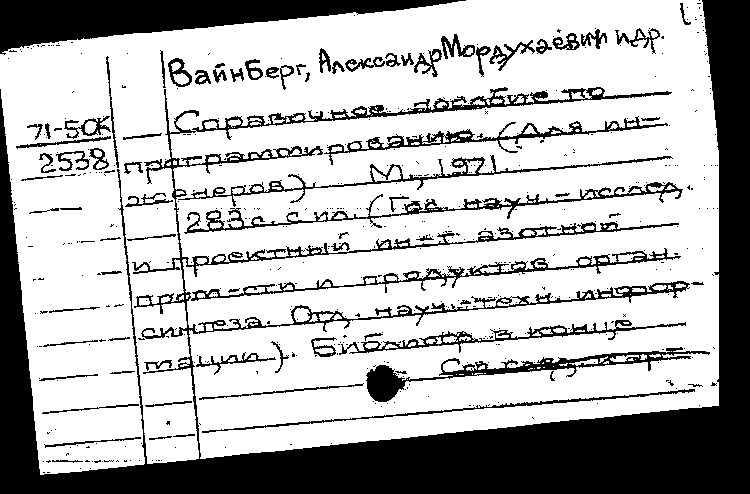 Вайнберг, Александр Мордухаевич и др.
71-5ОК Справочное пособие по
2538 программированию. (Для ин-
женеров). М., 1971.
283 с. с ил. (Гос. науч.-исслед.
и проектный ин-т азотной
пром-сти и продуктов орган.
синтеза. Отд. науч.-техн. инфор-
мации). Библиогр. в конце
См. след. кар-